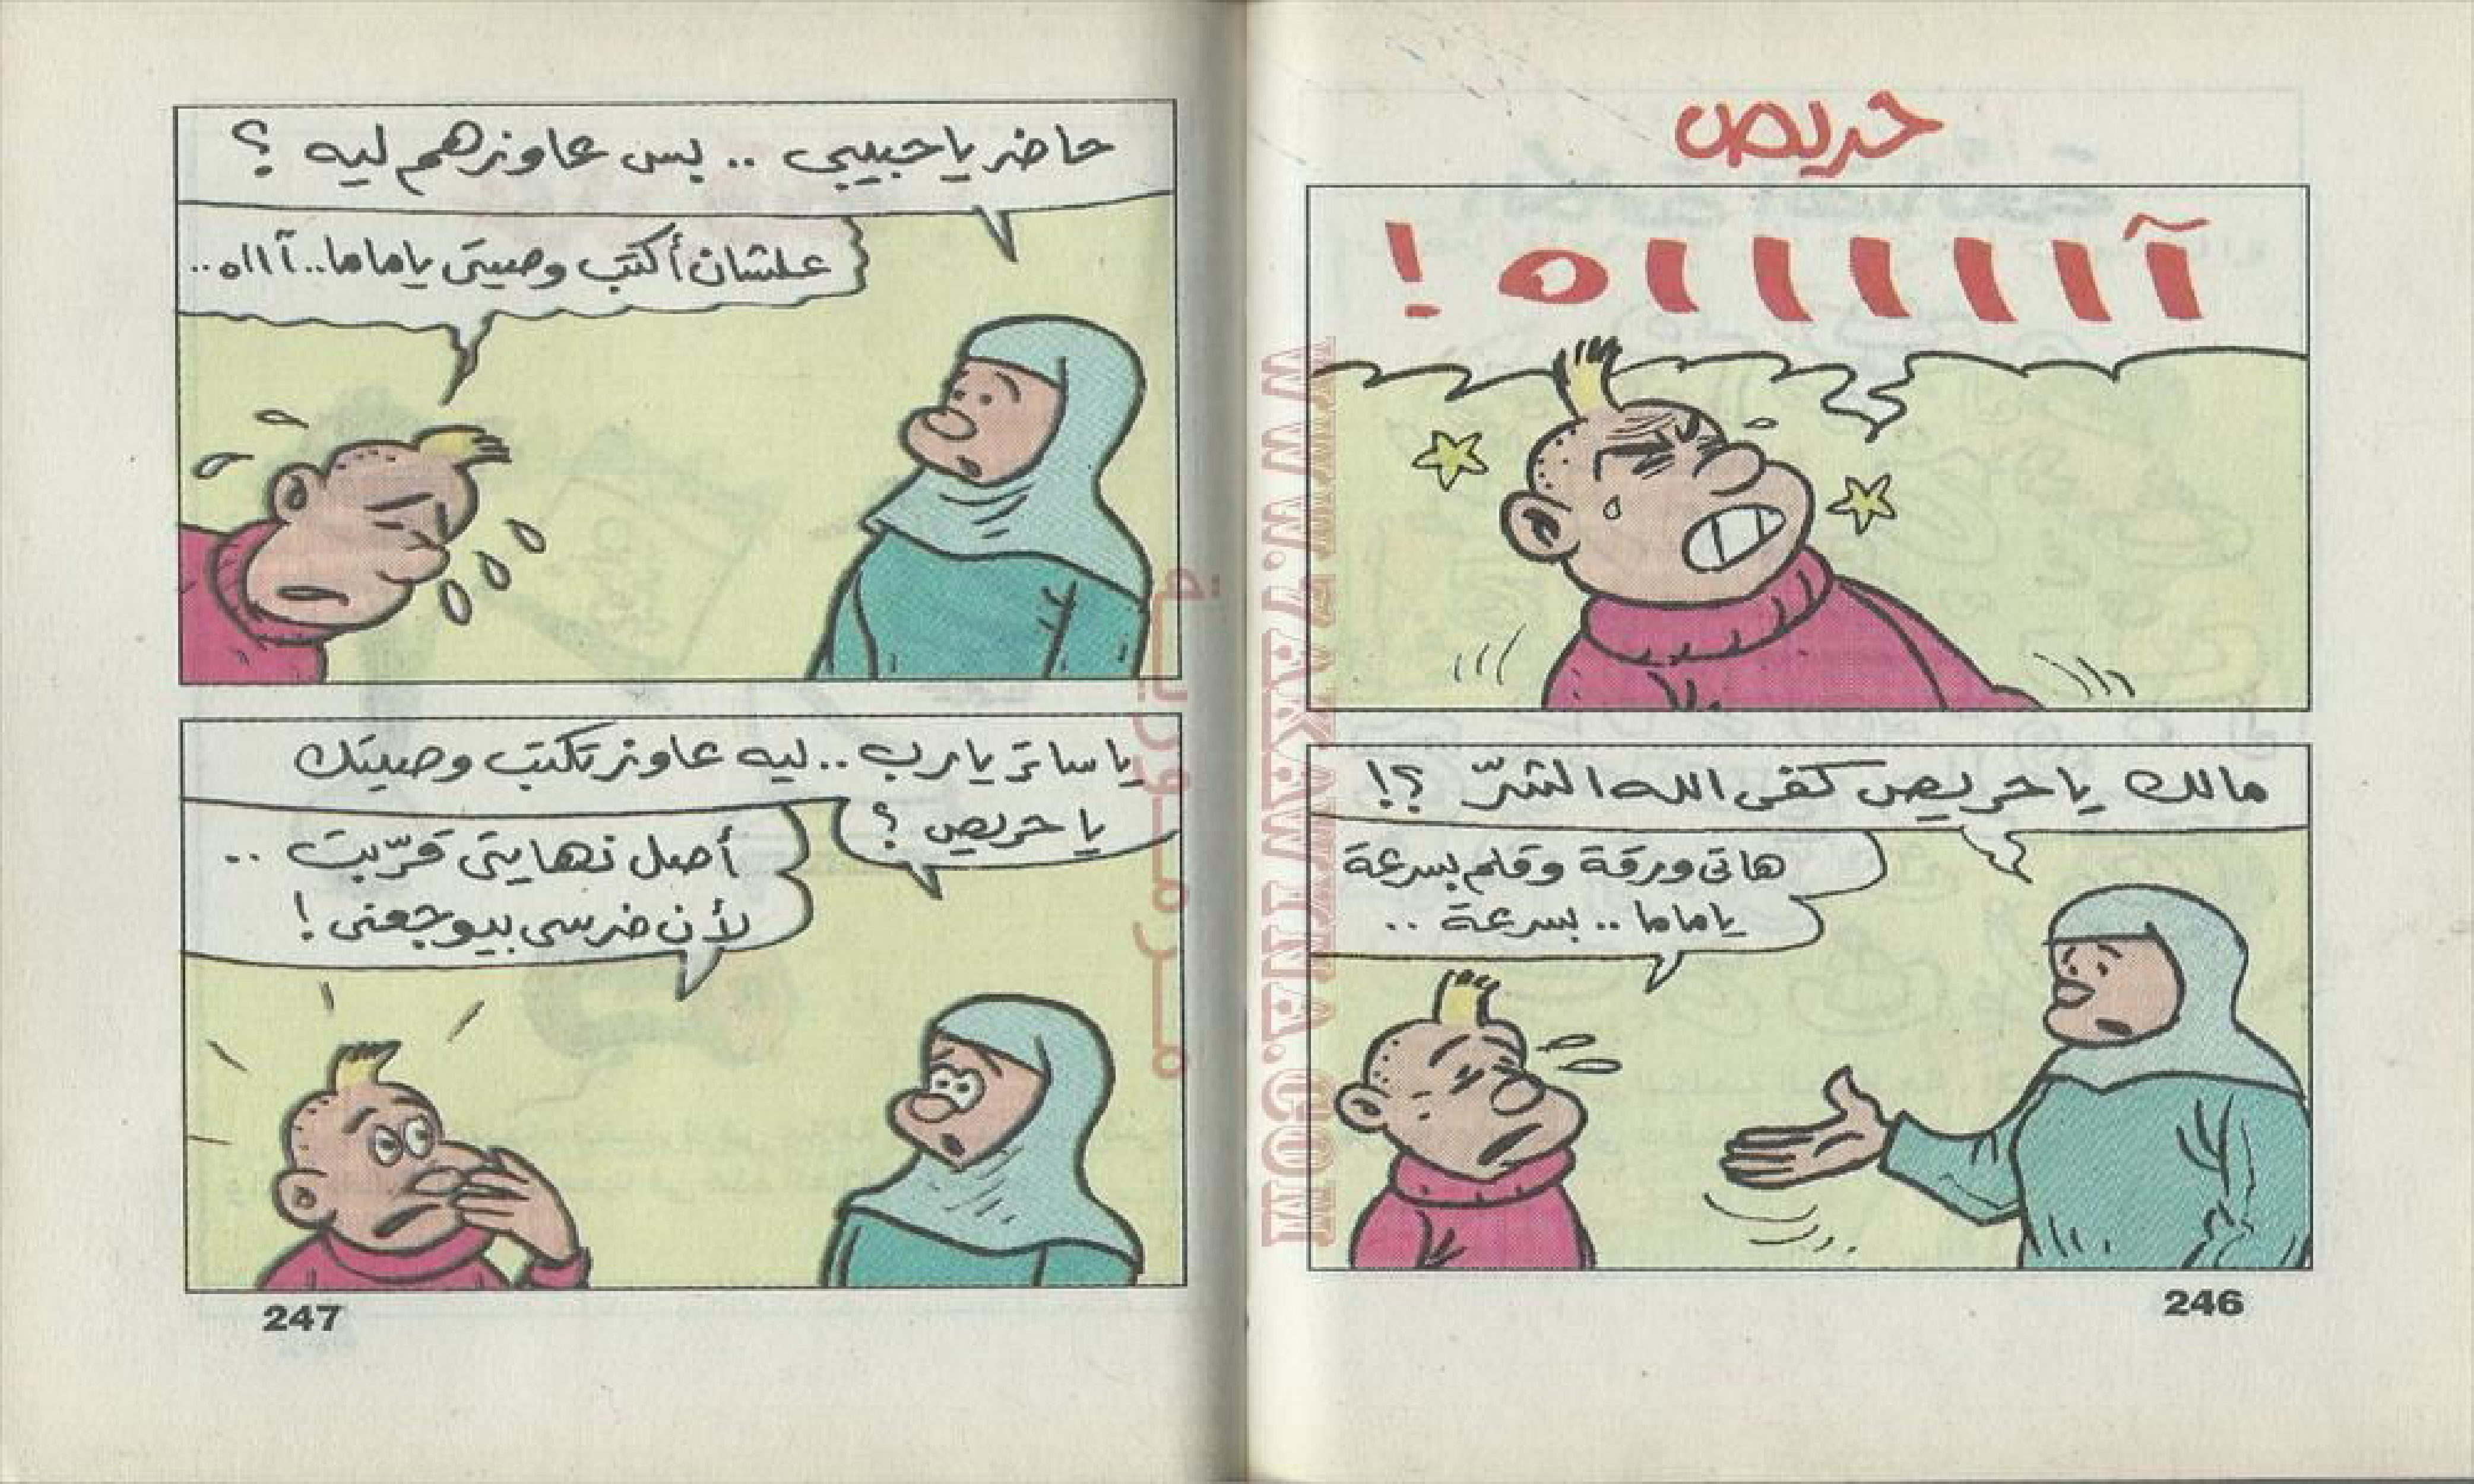 حريص
آااااااه!
مالك ياحريص كفى الله الشرّ ؟!
هاتى ورقة وقلم بسرعة
ياماما .. بسرعة ..
246
حاضر ياحبيبي .. بس عاوزهم ليه ؟
علشان أكتب وصيتى ياماما..آااه..
ياساتر يارب ..ليه عاوز تكتب وصيتك
يا حريص ؟
أصل نهايتى قرّبت ..
لأن ضرسى بيوجعنى !
247
WWW.ARAKNEWYINA.COM